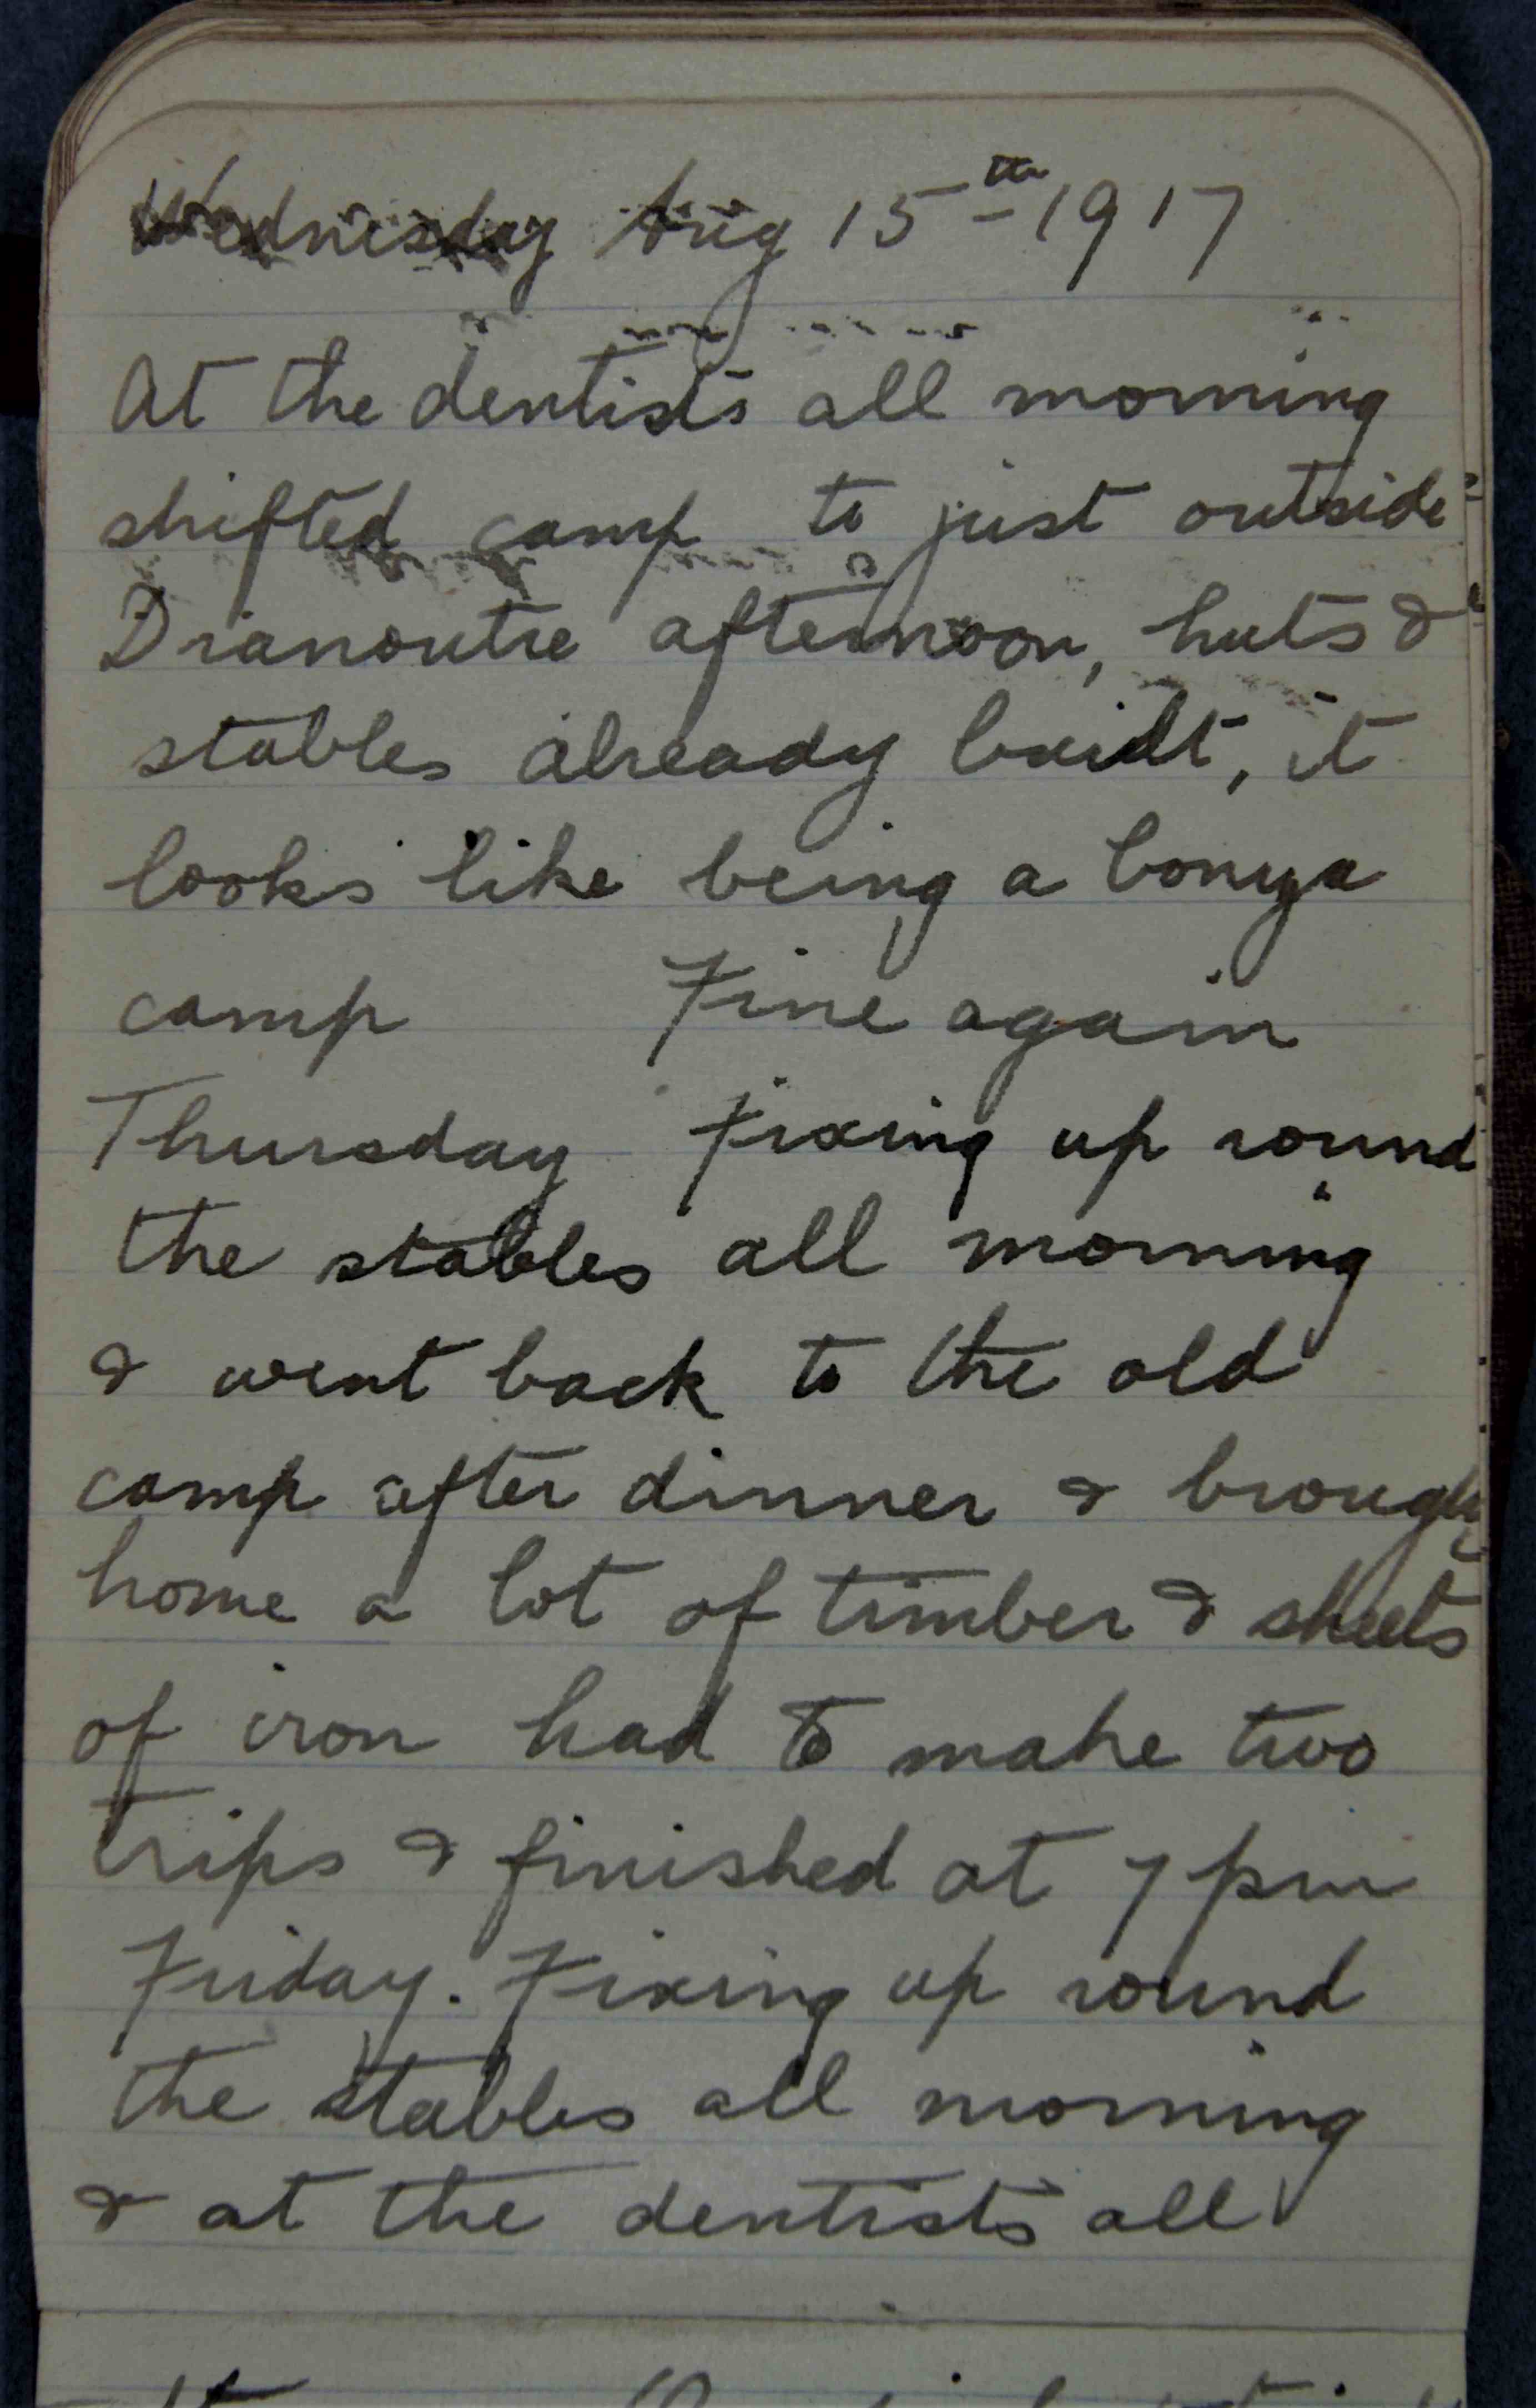 Wednesday Aug 15th 1917
At the dentists all morning
shifted camp to just outside
Dranoutre afternoon, huts &
stables already built, it
looks like being a bonza
camp Fine again
Thursday Fixing up round
the stables all morning
& went back to the old
camp after dinner & brought
home a lot of timber & sheets
of iron had to make two
trips & finished at 7 pm
Friday. Fixing up round
the stables all morning
& at the dentists all